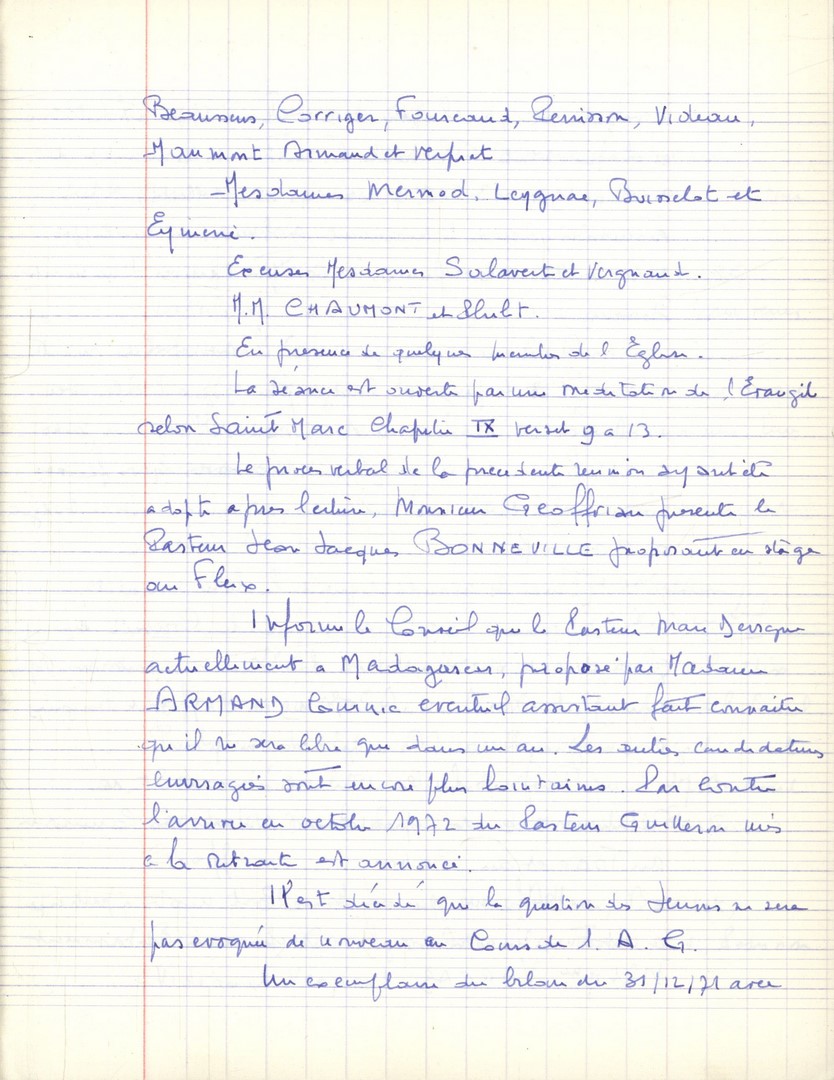 Beaussus, Corriger, Fourcaud, Penisson, Videau,
Maumont Armand et Verprat
Mesdames Mermod, Leygnac, Buisselot et
Eymerie.
Excuses Mesdames Salavert et Vergnaud.
M.M. CHAUMONT et
En présence de quelques membres de l'Eglise.
La séance est ouverte par une meditation de l'Evangile
selon Saint Marc Chapitre IX verset 9 a 13.
Le proces verbal de la precedente reunion ayant été
adopté apres lecture, Monsieur Geoffriau presente le
Pasteur Jean Jacques BONNEVILLE proposant en stage
au Fleix.
Informe le Conseil que le Pasteur Marc
actuellement a Madagascar, proposé par Madame
ARMAND comme eventuel assistant fait connaitre
qu il ne sera libre que dans un an. Les autres candidatures
envisagées sont encore plus lointaines. Par contre
l'arrivée en octobre 1972 du Pasteur Guilleron mis
a la retraite est annoncé.
Il est décidé que la question des Jeunes ne sera
pas evoquée de nouveau au Cours de l. A. G.
Un exemplaire du bilan du 31/12/71 avec